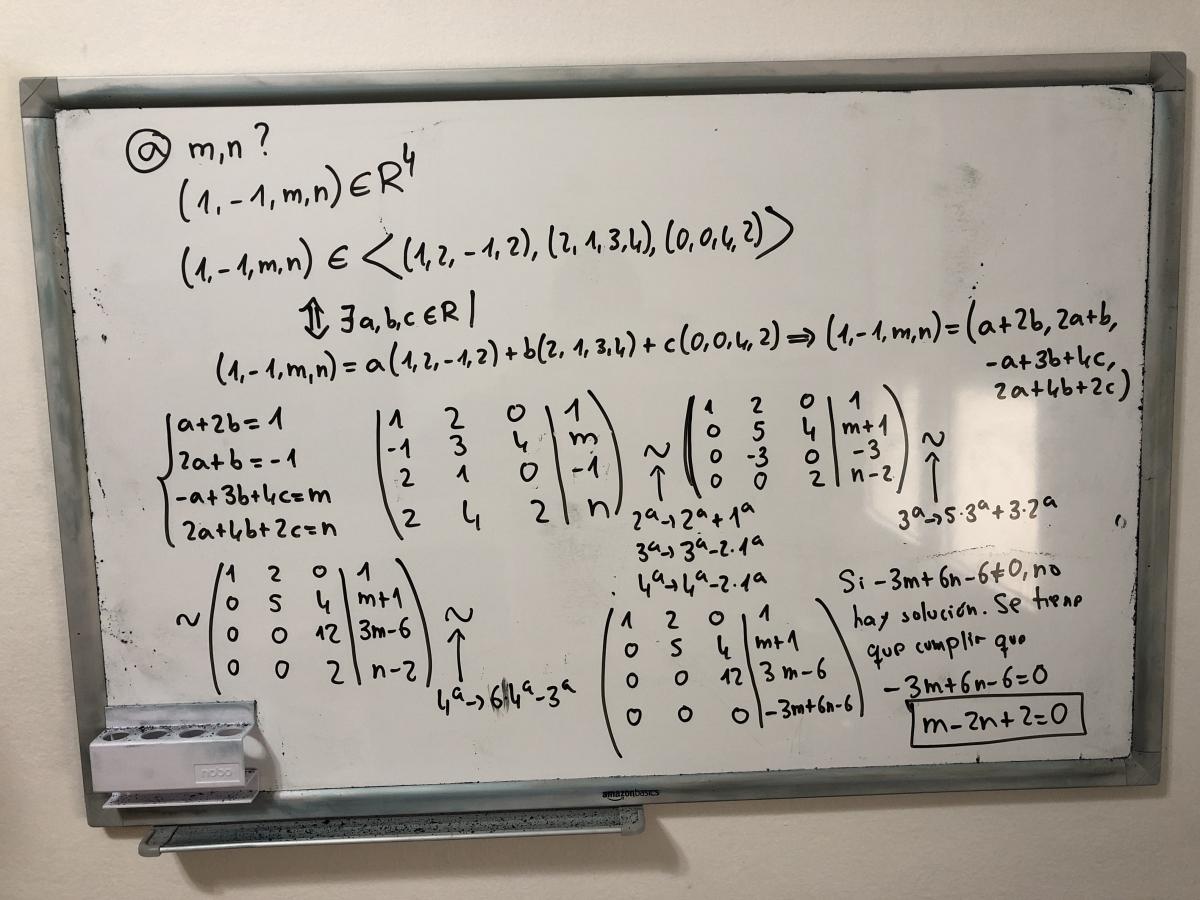 ⓐ m,n?
(1,-1,m,n) ∈ R⁴
(1,-1,m,n) ∈ <(1,2,-1,2), (2,1,3,4), (0,0,4,2)>
⇕ ∃a,b,c ∈ R |
(1,-1,m,n) = a(1,2,-1,2) + b(2,1,3,4) + c(0,0,4,2) ⇒ (1,-1,m,n) = (a+2b, 2a+b,
-a+3b+4c,
2a+4b+2c)
a+2b=1
2a+b=-1
-a+3b+4c=m
2a+4b+2c=n
1 2 0 | 1
-1 3 4 | m
2 1 0 | -1
2 4 2 | n
~
↑
2ª→2ª+1ª
3ª→3ª-2·1ª
4ª→4ª-2·1ª
1 2 0 | 1
0 5 4 | m+1
0 -3 0 | -3
0 0 2 | n-2
~
↑
3ª→5·3ª+3·2ª
~
1 2 0 | 1
0 5 4 | m+1
0 0 12 | 3m-6
0 0 2 | n-2
~
↑
4ª→6·4ª-3ª
1 2 0 | 1
0 5 4 | m+1
0 0 12 | 3m-6
0 0 0 | -3m+6n-6
Si -3m+6n-6≠0, no
hay solución. Se tiene
que cumplir que
-3m+6n-6=0
m-2n+2=0
nobo
amazonbasics